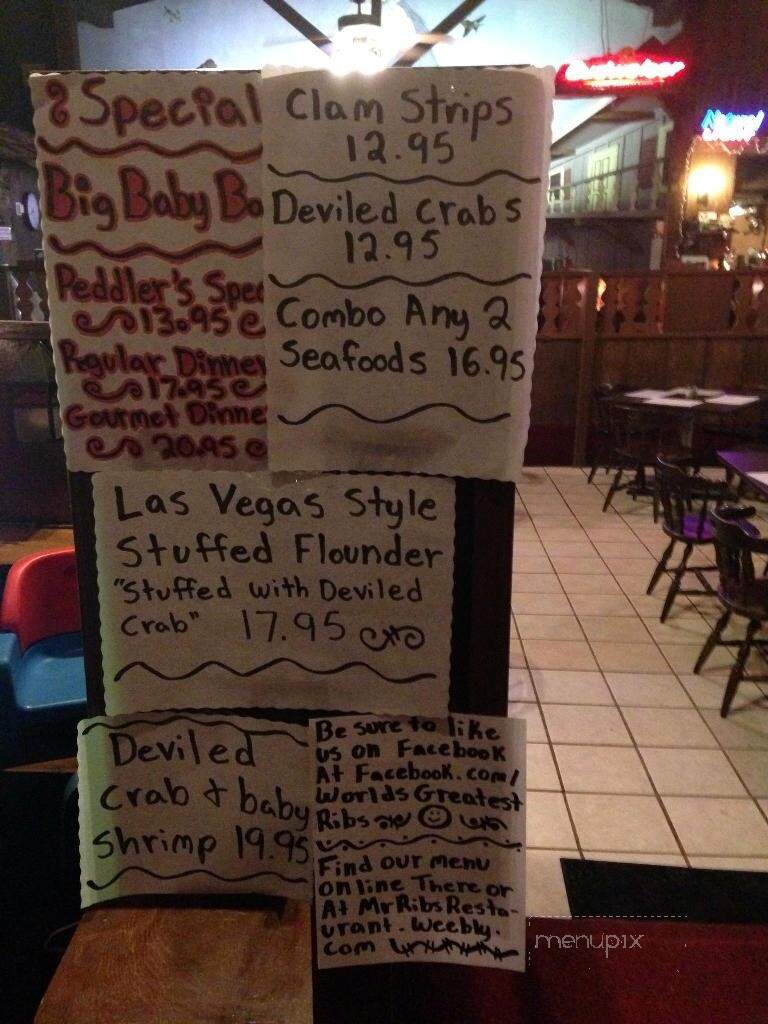 Special
Big Baby
Peddler's
13.95
Regular
17.95
Gourmet
20.95
Clam Strips
12.95
Deviled Crabs
12.95
Combo Any 2
Seafoods 16.95
Las Vegas Style
Stuffed Flounder
"Stuffed with Deviled
Crab" 17.95
Deviled
Crab & baby
Shrimp 19.95
Be sure to like
us on Facebook
At Facebook.com/
Worlds Greatest
Ribs
Find our menu
online There or
At MrRibsResta-
urant.Weebly.
com
Budweiser
menupix